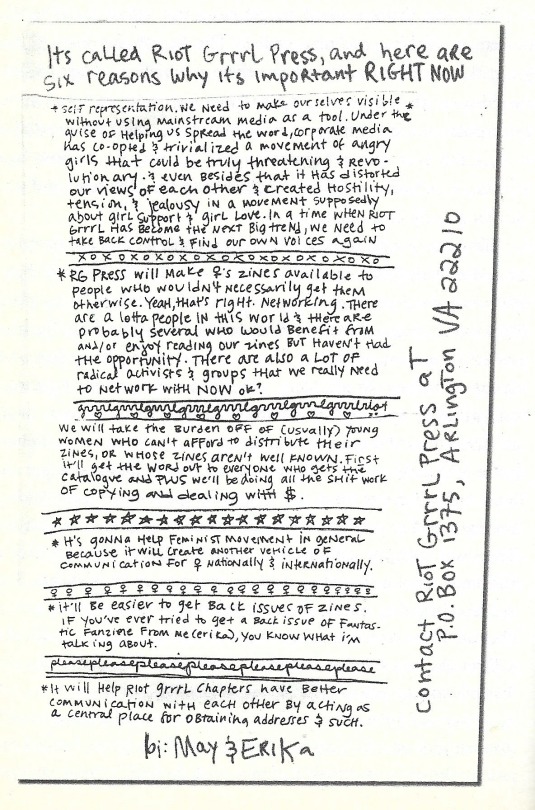 Its called Riot Grrrl Press, and here are
six reasons why its important RIGHT NOW
* self representation. We need to make ourselves visible *
without using mainstream media as a tool. Under the
guise of Helping us spread the word, corporate media
has co-opted & trivialized a movement of angry
girls that could be truly threatening & revo-
lutionary. & even besides that it has distorted
our views of each other & created Hostility,
tension, & jealousy in a movement supposedly
about girl support & girl Love. In a time when Riot
Grrrl Has Become the next Big trend, we need to
take Back control & Find our own voices again
XOXOXOXOXOXOXOXOXO
* RG Press will make ♀'s zines available to
people who wouldn't necessarily get them
otherwise. Yeah, that's right. Networking. There
are a lotta people in this world & there are
probably several who would Benefit from
and/or enjoy reading our zines But Haven't Had
the opportunity. There are also a lot of
radical activists & groups that we really need
to network with NOW ok?
grrrlgrrrlgrrrlgrrrlgrrrlgrrrlgrrrlriot
We will take the Burden off of (usually) young
women who can't afford to distribute their
zines, or whose zines aren't well known. First
it'll get the word out to everyone who gets the
catalogue and PLUS we'll be doing all the shit work
of copying and dealing with $.
* It's gonna Help Feminist Movement in general
Because it will create another vehicle of
communication for ♀ nationally & internationally.
♀♀♀♀♀♀♀♀♀♀♀♀♀♀♀♀♀♀♀♀♀
* it'll Be easier to get Back issues of zines.
If you've ever tried to get a Back issue of Fantas-
tic Fanzine From me (erika), you know what i'm
talking about.
pleasepleasepleasepleasepleasepleaseplease
* It will Help Riot grrrl Chapters have Better
communication with each other By acting as
a central place for obtaining addresses & such.
bi: May & ERIKA
Contact Riot Grrrl Press at
P.O. Box 1375, Arlington VA 22210